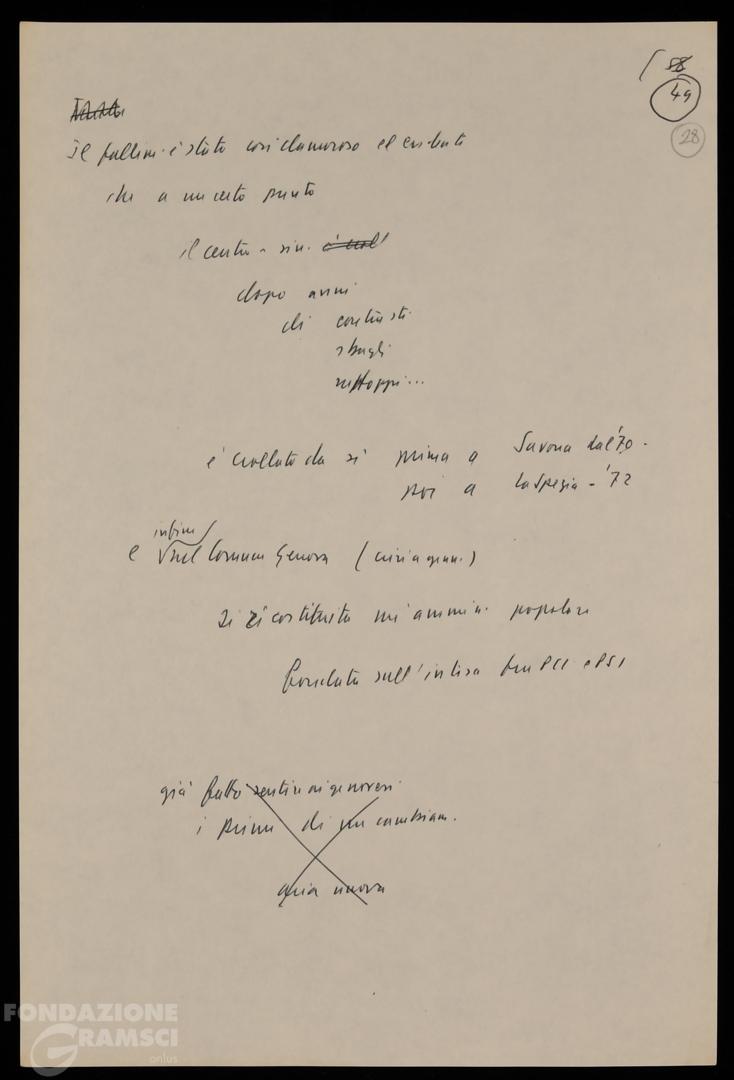 58
49
28
Il fallim. è stato così clamoroso ed evidente
che a un certo punto
il centro-sin. è croll
dopo anni
di contrasti
sbagli
rattoppi...
è crollato da sé prima a Savona dal '70 -
poi a La Spezia - '72
infine
e nel Comune Genova (
si è costituita un'ammin. popolare
fondata sull'intesa fra PCI e PSI
già fatto sentire ai genovesi
i primi di un cambiam.
aria nuova
FONDAZIONE
GRAMSCI
onlus